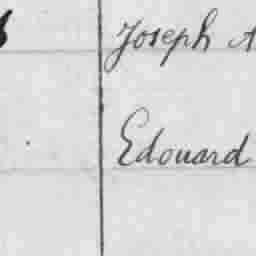 Joseph A
Edouard